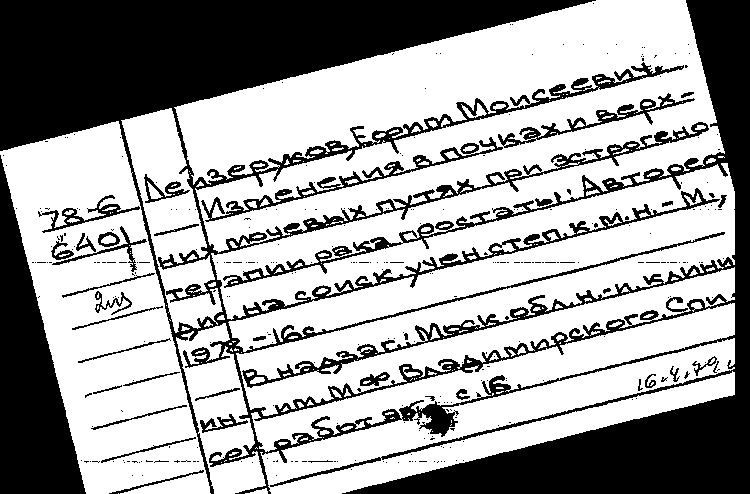 Лейзеруков, Ефим Моисеевич.
Изменения в почках и верх=
78-6
них мочевых путях при эстрогено-
6401
терапии рака простаты: Автореф
2 из
дис. на соиск. учен. степ. к.м.н. - М.,
1978. - 16с.
В надзаг.: Моск. обл. н.-и. клини
ин-т им. М.Ф. Владимирского. Спи-
сок работ авт с. 16.
16.4.79